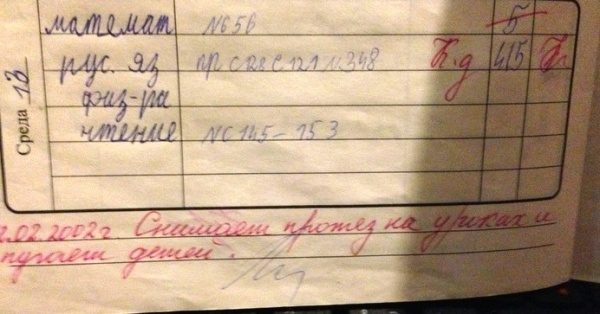 Среда 13
математ №656 5
рус. яз К.д 4/5
физ-ра
чтение 145-153
.02.2002г Снимает протез на уроках и
пугает детей.